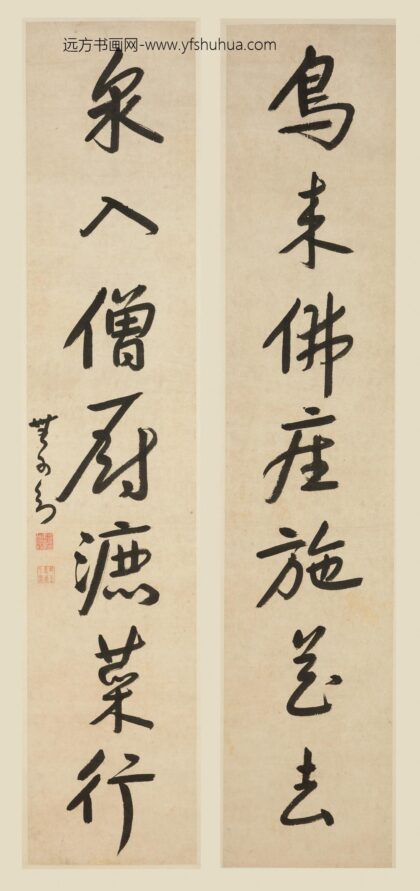 远方书画网-www.yfshuhua.com_
鳥来佛座施花去
泉入僧厨漉菜行